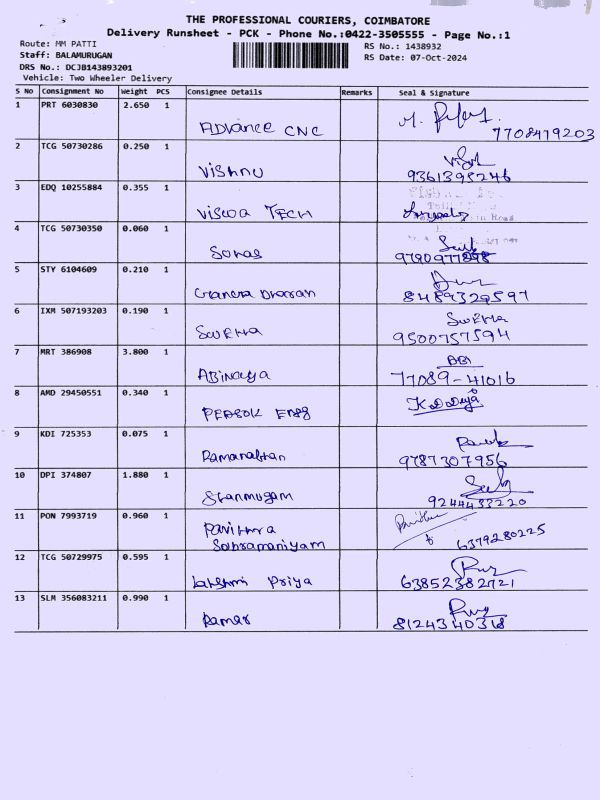 THE PROFESSIONAL COURIERS, COIMBATORE
Delivery Runsheet - PCK - Phone No.:0422-3505555 - Page No.:1
Route: MM PATTI RS No.: 1438932
Staff: BALAMURUGAN RS Date: 07-Oct-2024
DRS No.: DCJB143893201
Vehicle: Two Wheeler Delivery
S No Consignment No Weight PCS Consignee Details Remarks Seal & Signature
1 PRT 6030830 2.650 1
ADVance CNC 7708479203
2 TCG 50730286 0.250 1
Vishnu 9361395246
3 EDQ 10255884 0.355 1
Viscoa TECH
4 TCG 50730350 0.060 1
9790977098
5 STY 6104609 0.210 1
8489329597
6 IXM 507193203 0.190 1 Swetha
Swetha 9500757594
7 MRT 386908 3.800 1
ABinaya 77089-41016
8 AMD 29450551 0.340 1
Engg
9 KDI 725353 0.075 1
Ramanathan 9787307956
10 DPI 374807 1.880 1
Shanmugam 9244433220
11 PON 7993719 0.960 1
Pavithra 6379280225
Subramaniyam
12 TCG 50729975 0.595 1
Lakshmi Priya 63852382721
13 SLM 356083211 0.990 1
Ramar 8124340318